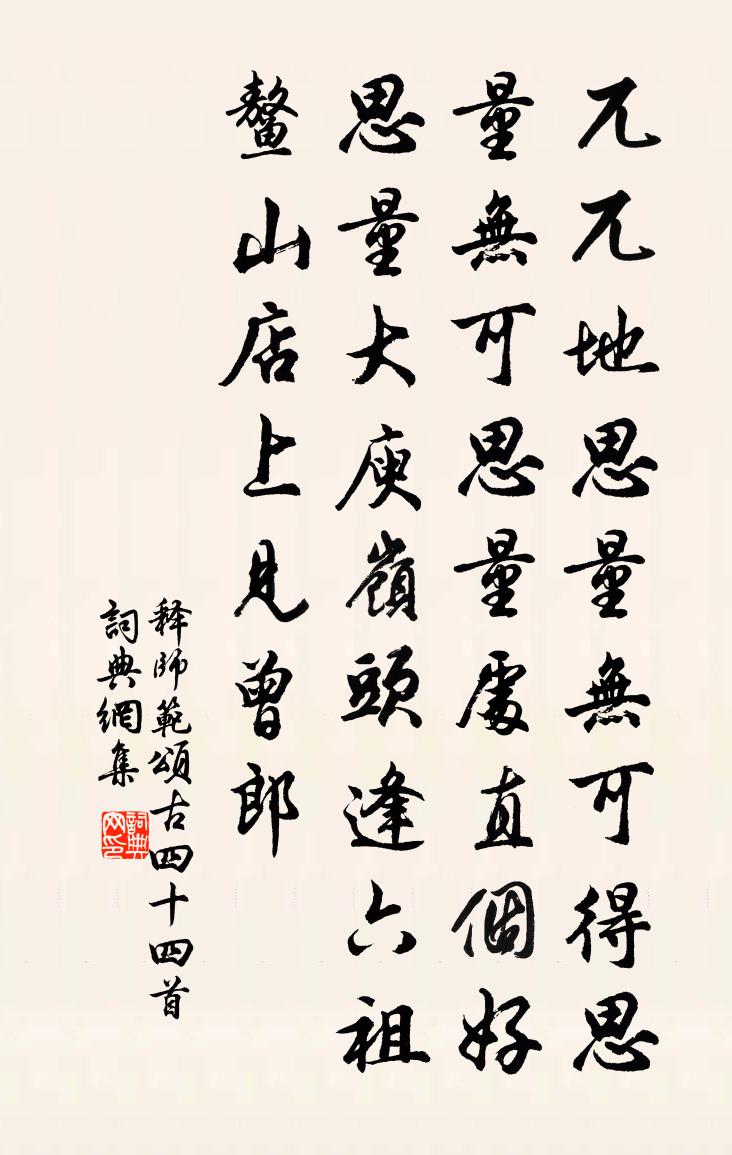 兀兀地思量無可得思
量無可思量處直個好
思量大庾嶺頭逢六祖
鰲山店上見曾郎
释師範頌古四十四首
詞典網集
詞典网印